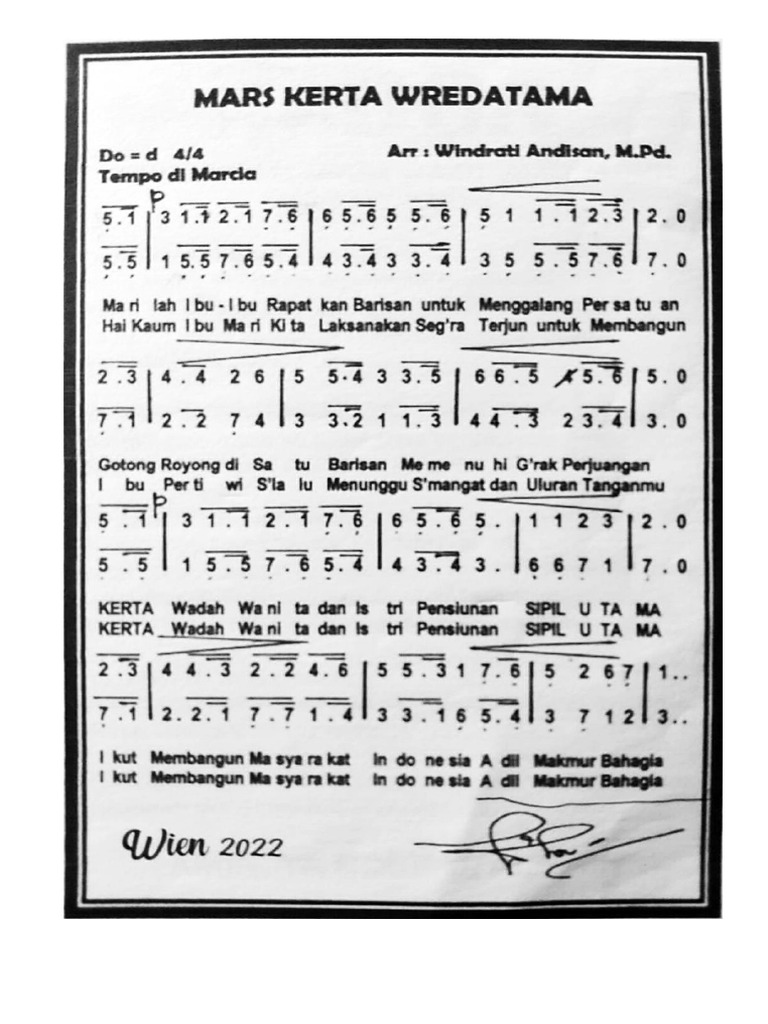 MARS KERTA WREDATAMA
Do = d 4/4
Arr : Windrati Andisan, M.Pd.
Tempo di Marcia
p
5.1 | 3 1.1 2.1 7.6 | 6 5.6 5 5.6 | 5 1 1.1 2.3 | 2.0
5.5 | 1 5.5 7.6 5.4 | 4 3.4 3 3.4 | 3 5 5.5 7.6 | 7.0
Ma ri lah I bu - I bu Rapat kan Barisan untuk Menggalang Per sa tu an
Hai Kaum I bu Ma ri Ki ta Laksanakan Seg'ra Terjun untuk Membangun
2.3 | 4.4 2 6 | 5 5.4 3 3.5 | 6 6.5 5.6 | 5.0
7.1 | 2.2 7 4 | 3 3.2 1 1.3 | 4 4.3 2 3.4 | 3.0
Gotong Royong di Sa tu Barisan Me me nu hi G'rak Perjuangan
I bu Per ti wi S'la lu Menunggu S'mangat dan Uluran Tanganmu
p
5.1 | 3 1.1 2.1 7.6 | 6 5.6 5. | 1 1 2 3 | 2.0
5.5 | 1 5.5 7.6 5.4 | 4 3.4 3. | 6 6 7 1 | 7.0
KERTA Wadah Wa ni ta dan Is tri Pensiunan SIPIL U TA MA
KERTA Wadah Wa ni ta dan Is tri Pensiunan SIPIL U TA MA
2.3 | 4 4.3 2.2 4.6 | 5 5.3 1 7.6 | 5 2 6 7 | 1..
7.1 | 2.2.1 7.7 1.4 | 3 3.1 6 5.4 | 3 7 1 2 | 3..
I kut Membangun Ma sya ra kat In do ne sia A dil Makmur Bahagia
I kut Membangun Ma sya ra kat In do ne sia A dil Makmur Bahagia
Wien 2022